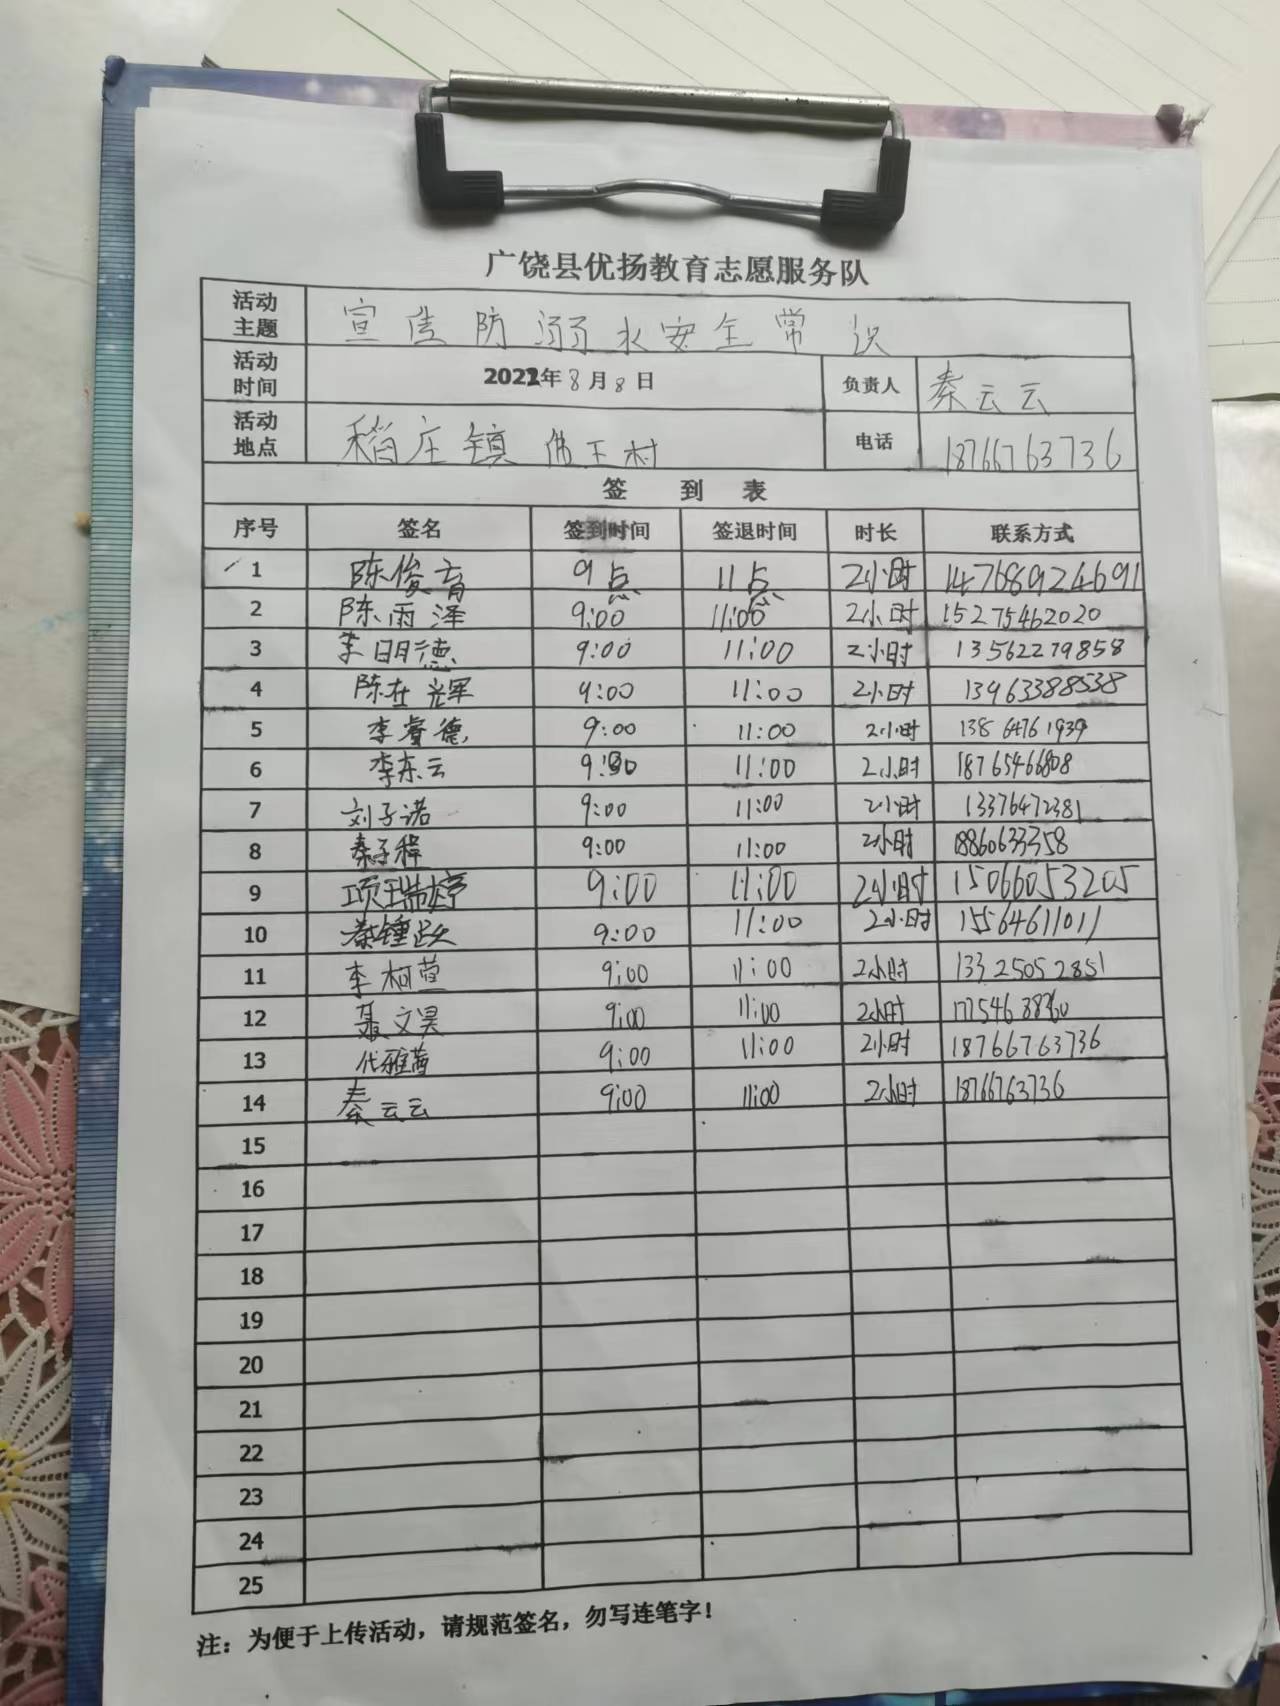 广饶县优扬教育志愿服务队
活动主题 宣传防溺水安全常识
活动时间 2022年8月8日 负责人 秦云云
活动地点 稻庄镇 王村 电话 18766763736
签 到 表
序号 签名 签到时间 签退时间 时长 联系方式
1 陈俊育 9点 11点 2小时 147689924691
2 陈雨泽 9:00 11:00 2小时 15275462020
3 李明德 9:00 11:00 2小时 13562279858
4 陈在辉 9:00 11:00 2小时 13963388538
5 李睿德 9:00 11:00 2小时 13864761939
6 李东云 11:00 2小时 18765466808
7 刘子诺 9:00 11:00 2小时 13376472381
8 秦子程 9:00 11:00 2小时 18860633358
9 项瑞婷 9:00 11:00 2小时 15066053205
10 秦锺跃 9:00 11:00 2小时 15564611011
11 李柯萱 9:00 11:00 2小时 13325052851
12 聂文昊 9:00 11:00 2小时
13 代雅茜 9:00 11:00 2小时 18766763736
14 秦云云 9:00 11:00 2小时 18766763736
15
16
17
18
19
20
21
22
23
24
25
注：为便于上传活动，请规范签名，勿写连笔字！